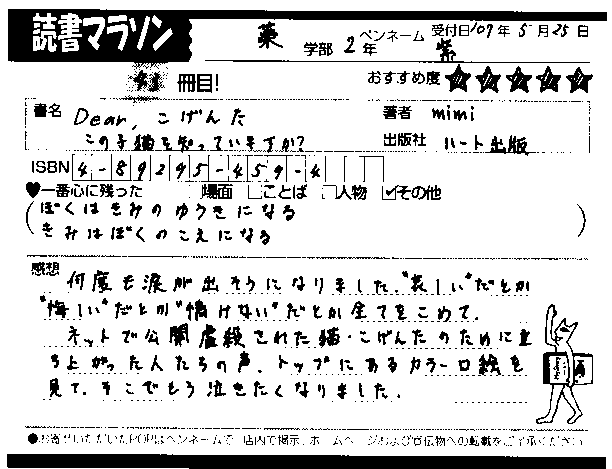 読書マラソン
薬 学部 2年 ペンネーム 紫 受付日'09年5月25日
冊目! おすすめ度 ★★★★★
書名 Dear, こげんた
この子猫を知っていますか?
著者 mimi
出版社 ハート出版
ISBN 4-89295-459-4
♥一番心に残った □場面 □ことば □人物 ☑その他
(ぼくはきみのゆうきになる
きみはぼくのこえになる)
感想 何度も涙が出そうになりました。"哀しい"だとか
"悔しい"だとか"情けない"だとか全てをこめて。
ネットで公開虐殺された猫・こげんたのために立
ち上がった人たちの声、トップにあるカラー口絵を
見て、そこでもう泣きたくなりました。
●お寄せいただいたPOPはペンネームで 店内で掲示、ホームページおよび宣伝物への転載をご了承ください